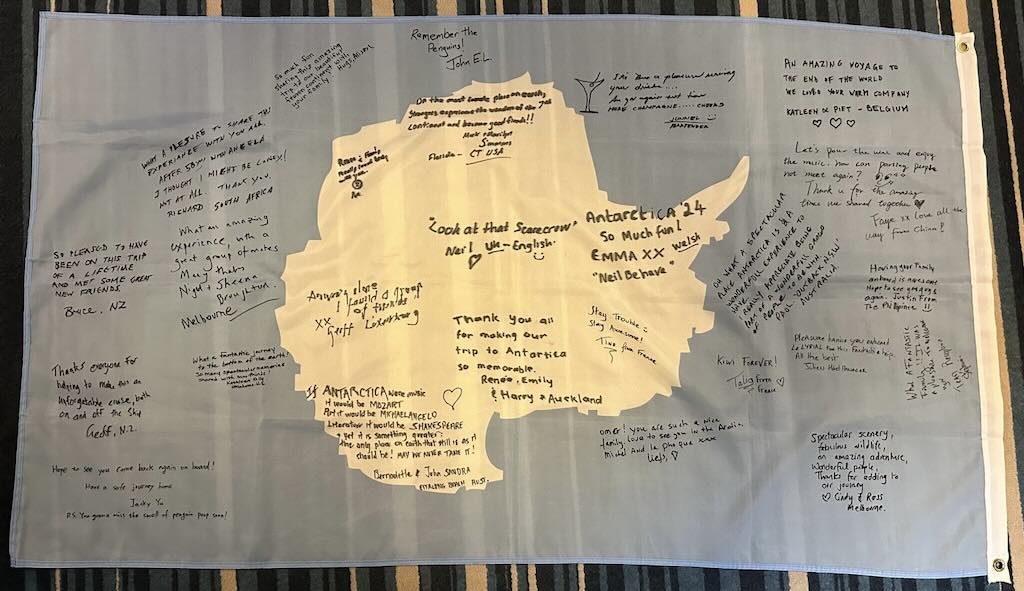 Remember the
Penguins!
John E.L.
So much fun
sharing this amazing
trip to our beautiful
frozen continent with
your family!
WHAT A PLESURE TO SHARE THIS
EXPERIANCE WITH YOU ALL.
AFTER WITH ANGELA
I THOUGHT I MIGHT BE LONELY!
NOT AT ALL. THANK YOU.
RICHARD SOUTH AFRICA
What an amazing
experience, with a
great group of mates
Many thanks
Nigel & Sheena
Broughton.
Melbourne
SO PLEASED TO HAVE
BEEN ON THIS TRIP
OF A LIFETIME
AND MET SOME GREAT
NEW FRIENDS.
Bruce, NZ
Thanks everyone for
helping to make this an
unforgettable cruise, both
on and off the Ship
Geoff, N.Z.
What a fantastic journey
to the bottom of the earth!
So many spectacular memories
shared with
Hope to see you come back again on board!
Have a safe journey home
Jacky Yu
P.S. You gonna miss the smell of penguin poop soon!
On the most remote place on earth
Strangers experience the wonders of the 7th
Continent and became good friends!!
Simmons
CT USA
"Look at that Scarecrow"
Neil UK - English.
Antarctica '24
So Much fun!
EMMA XX Welsh
"Neil Behave"
I found a group
of friends
XX
Geoff
Thank you all
for making our
trip to Antartica
so memorable.
Renée, Emily
& Harry Auckland
Stay Trouble
Stay Awesome!
Tine from France
If ANTARCTICA were music
it would be MOZART
Art it would be MICHAELANGELO
Literature it would be SHAKESPEARE
Yet it is something greater:
the only place on earth that still is as it
should be! MAY WE NEVER TAME IT!
Bernadette & John SANDRA
BEACH AUST.
It's Been a pleasure serving
your drinks...
MORE CHAMPAGNE.... CHEERS
BARTENDER
AN AMAZING VOYAGE TO
THE END OF THE WORLD
WE LOVED YOUR WARM COMPANY
KATLEEN & PIET - BELGIUM
Let's pour the wine and enjoy
the music. how can parting people
not meet again?
Thank u for the amazing
times we shared together
Faye xx Love all the
way from China!
OH WHAT A SPECTACULAR
PLACE ANTARCTICA IS & A
WONDERFUL EXPERIENCE TO
REALLY APPRECIATE BEING
PART OF A WONDERFUL GROUP
OF PEOPLE TO ADVENTURE
PAUL 'OUTBACK NSW'
AUSTRALIA
Having your family
onboard is awesome
Hope to see you guys
again. Justin From
The Philippines !!
Pleasure having you onboard
Le LYRIAL for this fantastic trip.
All the best
Kiwi Forever!
from
France
omg! you are such a nice
family love to see you in the Arctic.
xxx
Spectacular scenery,
fabulous wildlife,
an amazing adventure,
Wonderful people,
Thanks for adding to
our journey
Cindy & Ross
Melbourne.